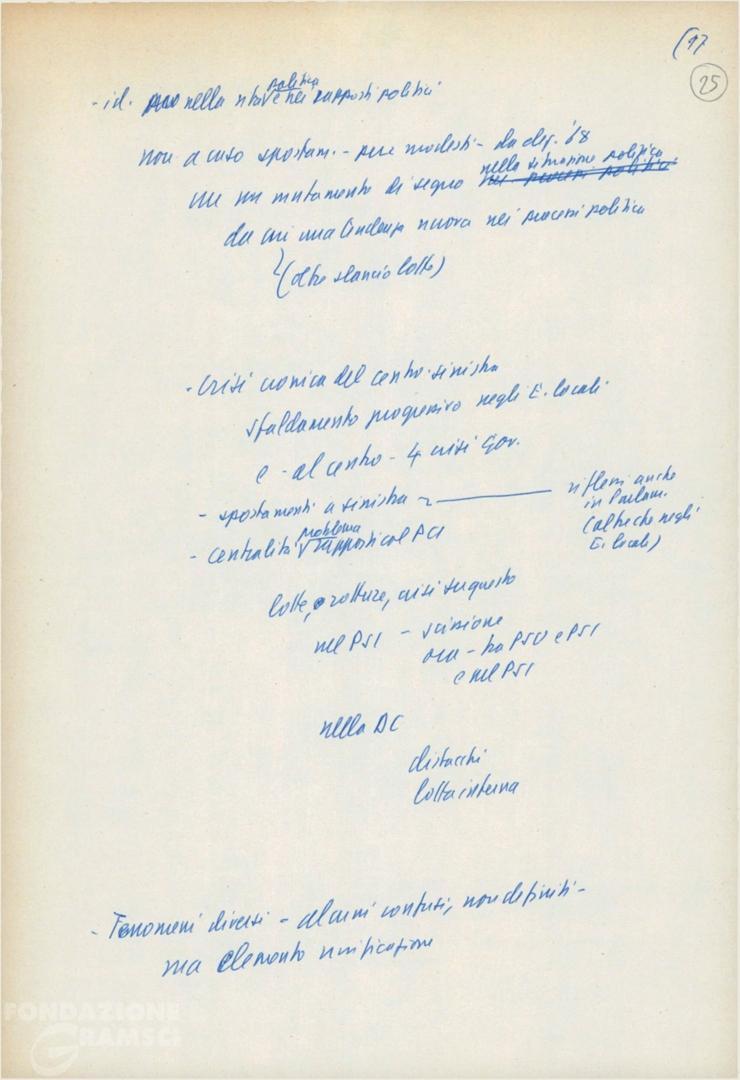 (17
25
- id. nella politica e nei rapporti politici
non a caso spostam. - pure modesti - da dep. '68
un mutamento di segno nella situazione politica
nei processi politici
da cui una tendenza nuova nei processi politici
(oltre slancio lotte)
- Crisi cronica del centro-sinistra
sfaldamento progressivo negli E. locali
e - al centro - 4 crisi Gov.
- spostamenti a sinistra — riflessi anche
in Parlam.
(oltre che negli
E. locali)
- centralità problema rapporti col PCI
lotte, rotture, crisi su questo
nel PSI - scissione
ora - tra PSU e PSI
e nel PSI
nella DC
distacchi
lotta interna
- Fenomeni diversi - alcuni confusi, non definiti -
ma elemento unificazione
FONDAZIONE
GRAMSCI